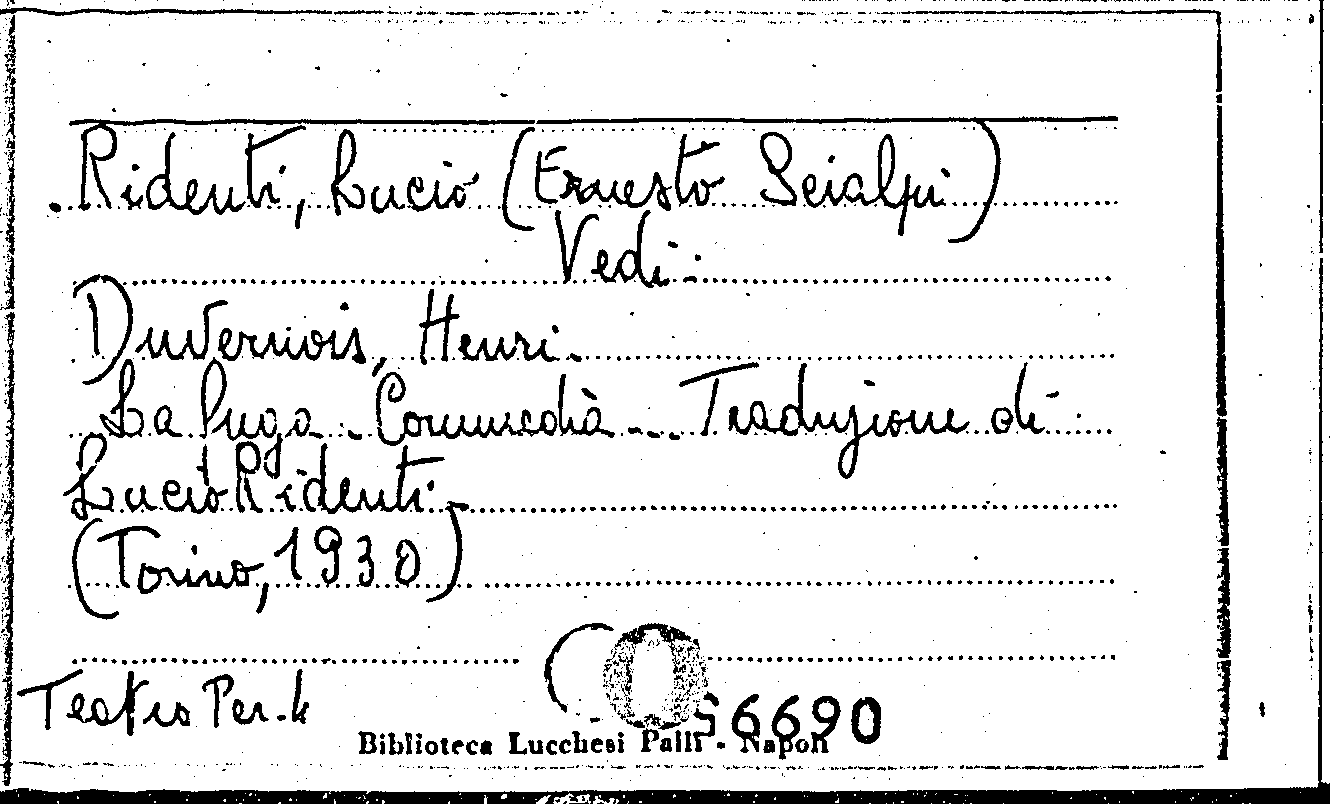 Ridenti, Lucio (Ernesto Scialpi)
Vedi:
Duvernois, Henri.
La fuga. Commedia. Traduzione di
Lucio Ridenti.
(Torino, 1930)
Teatro Per. k
56690
Biblioteca Lucchesi Palli - Napoli